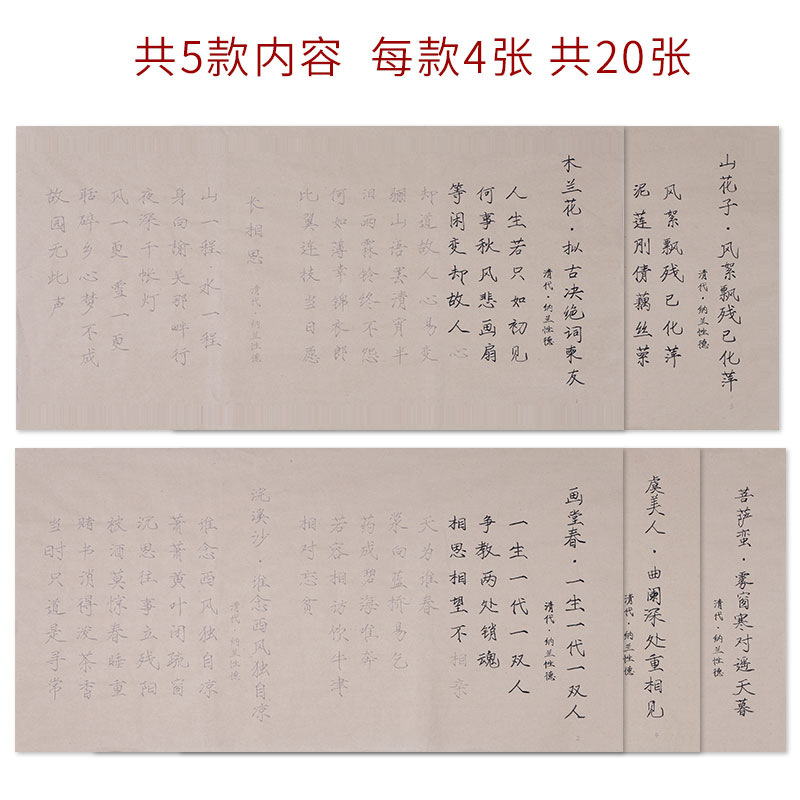 共5款内容 每款4张 共20张
山花子·风絮飘残已化萍
清代·纳兰性德
风絮飘残已化萍
泥莲刚倩藕丝萦
木兰花·拟古决绝词柬友
清代·纳兰性德
人生若只如初见
何事秋风悲画扇
等闲变却故人心
却道故人心易变
骊山语罢清宵半
泪雨霖铃终不怨
何如薄幸锦衣郎
比翼连枝当日愿
长相思
清代·纳兰性德
山一程·水一程
身向榆关那畔行
夜深千帐灯
风一更 雪一更
聒碎乡心梦不成
故园无此声
菩萨蛮·雾窗寒对遥天暮
清代·纳兰性德
虞美人·曲阑深处重相见
清代·纳兰性德
画堂春·一生一代一双人
清代·纳兰性德
一生一代一双人
争教两处销魂
相思相望不相亲
天为谁春
浆向蓝桥易乞
药成碧海难奔
若容相访饮牛津
相对忘贫
浣溪沙·谁念西风独自凉
清代·纳兰性德
谁念西风独自凉
萧萧黄叶闭疏窗
沉思往事立残阳
被酒莫惊春睡重
赌书消得泼茶香
当时只道是寻常